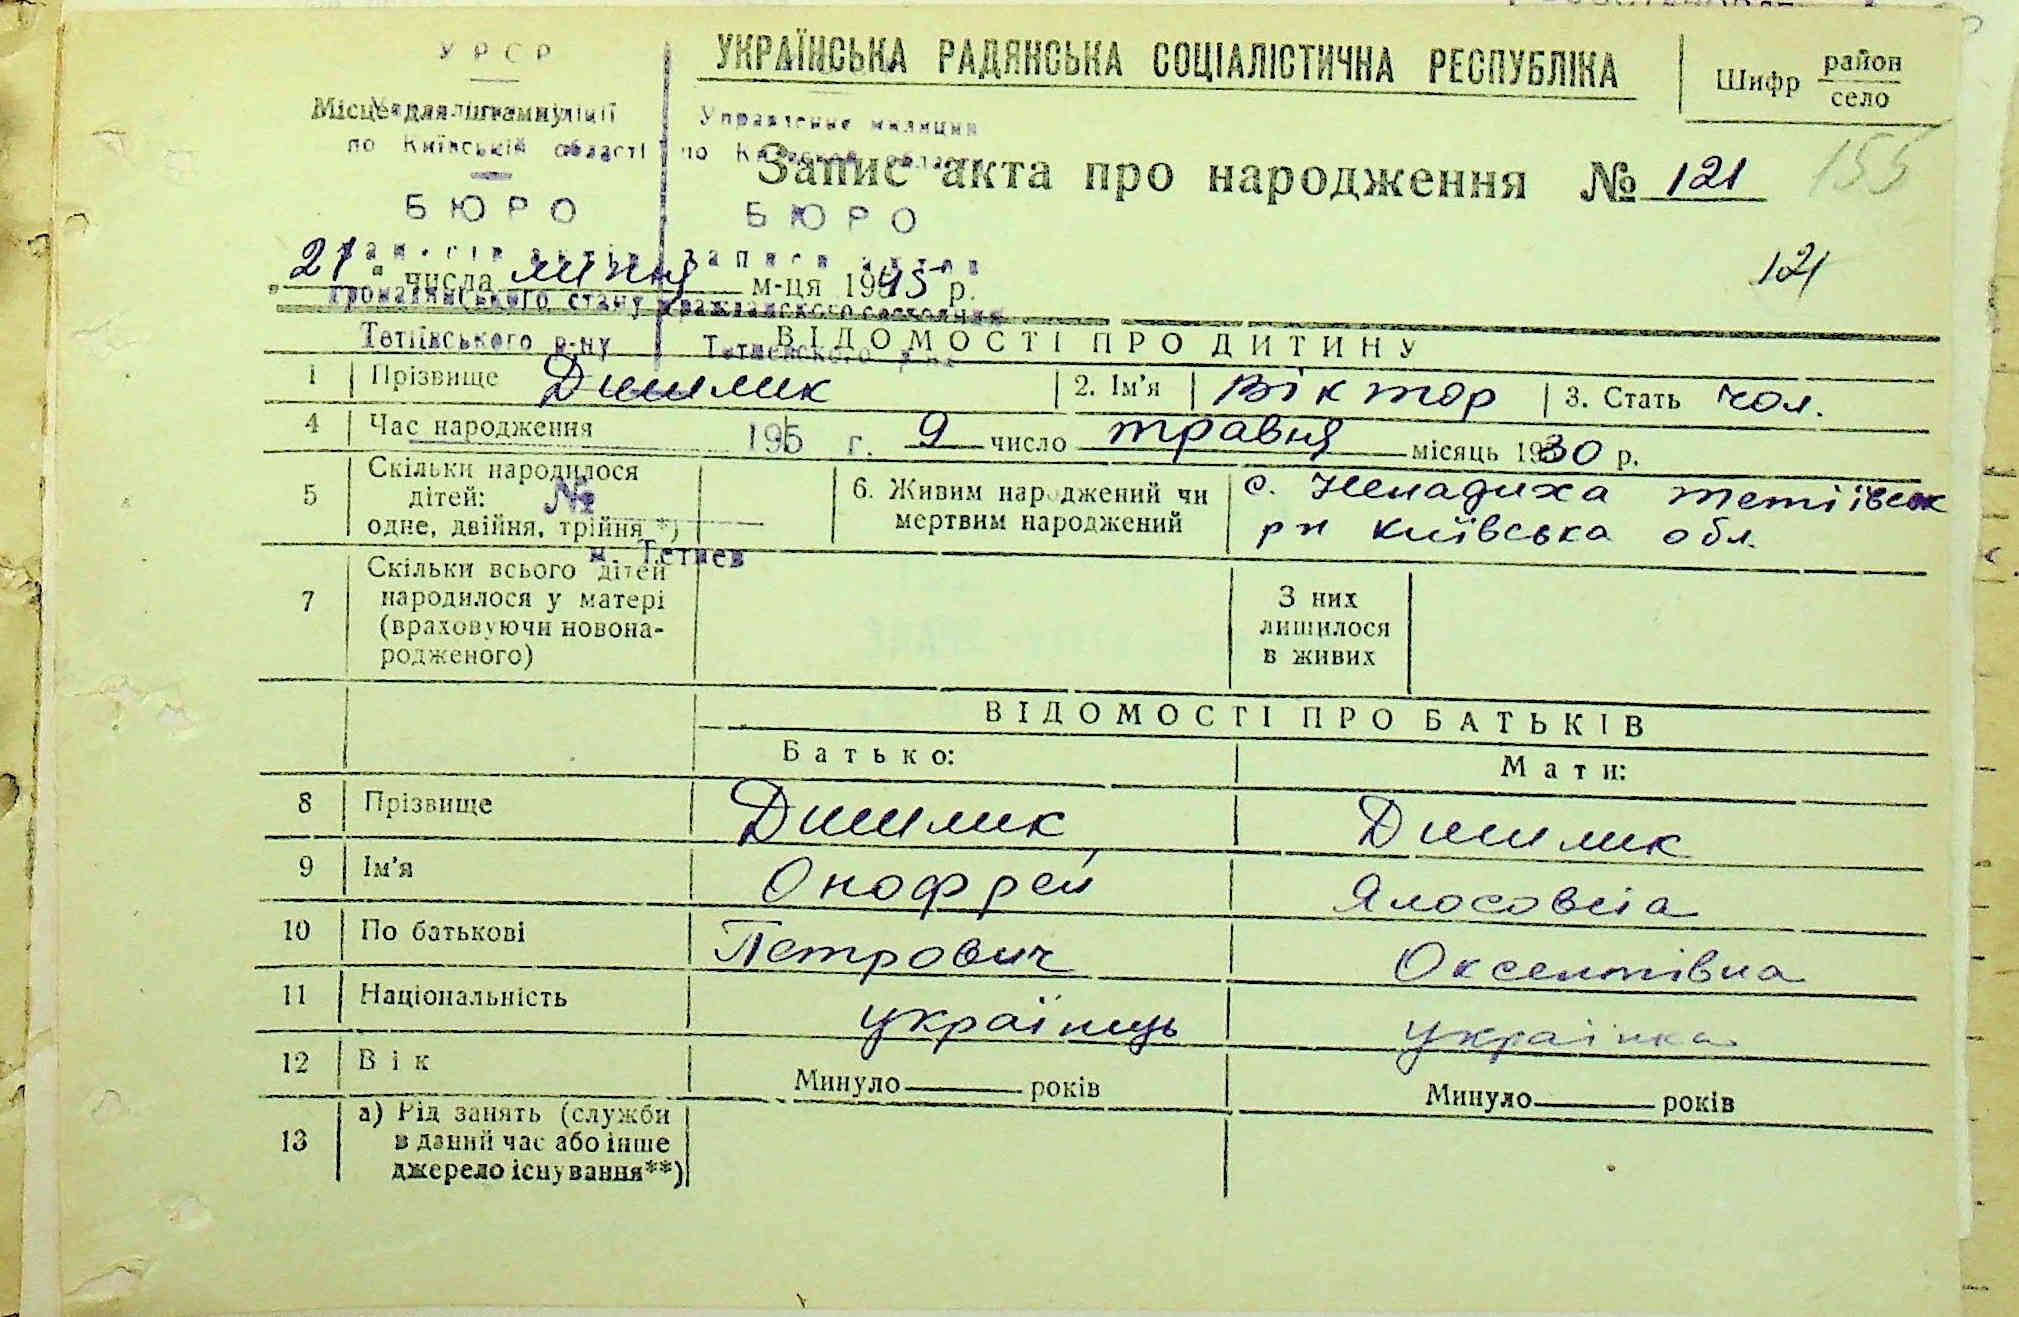 УКРАЇНСЬКА РАДЯНСЬКА СОЦІАЛІСТИЧНА РЕСПУБЛІКА
Шифр район
село
УРСР
Місце для штампу
Управление милиции
по Київській області по Киевской област
155
Запис акта про народження № 121
БЮРО БЮРО
121
„21" числа липня м-ця 1945 р.
громадянського стану гражданского состояния
Тетіївського р-ну Тетиевского р-на
ВІДОМОСТІ ПРО ДИТИНУ
1 Прізвище Дишлик 2. Ім'я Віктор 3. Стать чол.
4 Час народження 195 г. 9 число травня місяць 1930 р.
5 Скільки народилося
дітей: №
одне, двійня, трійня *)
6. Живим народжений чи
мертвим народжений
с. Ненадиха тетіївськ
рн Київська обл.
м. Тетиев
7 Скільки всього дітей
народилося у матері
(враховуючи новона-
родженого)
З них
лишилося
в живих
ВІДОМОСТІ ПРО БАТЬКІВ
Батько: Мати:
8 Прізвище Дишлик Дишлик
9 Ім'я Онофрей
10 По батькові Петрович Оксентівна
11 Національність українець українка
12 Вік Минуло років Минуло років
13 а) Рід занять (служби
в даний час або інше
джерело існування**)